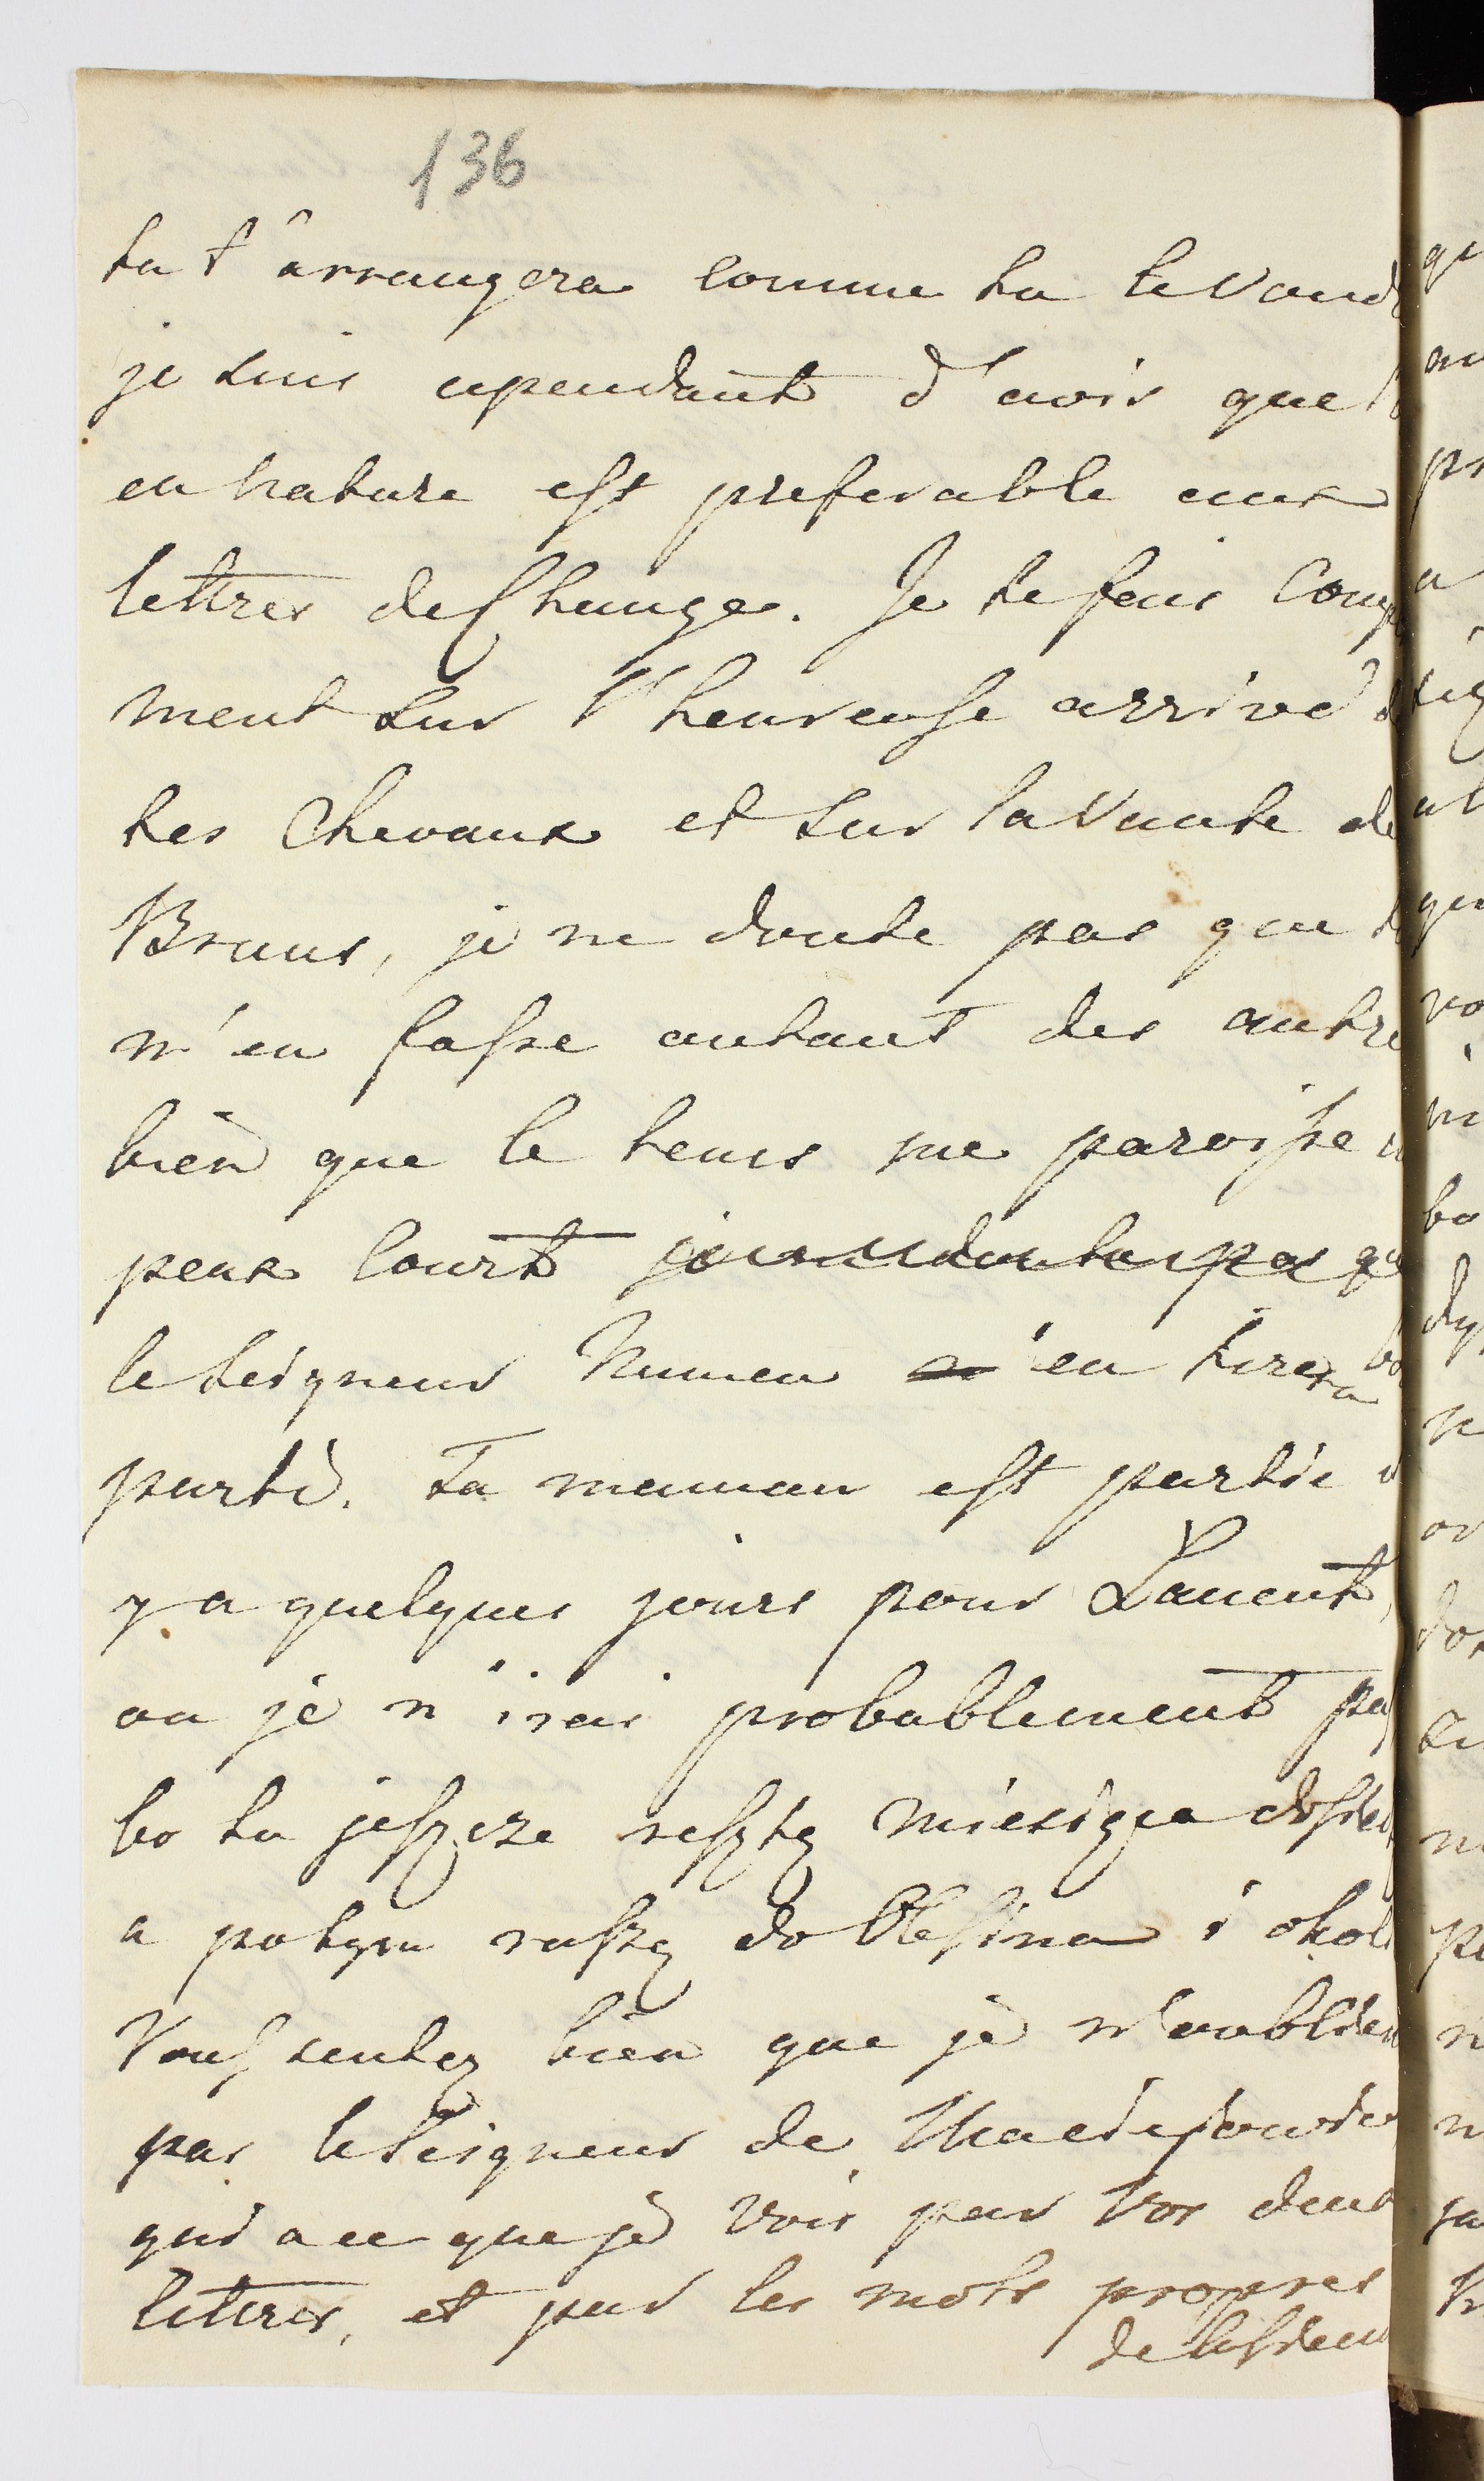 136
tu t'arrangera comme tu le Voud
je suis cependant d'avis que
en nature est preferable aux
lettres de Change. Je te fais Comp
ment sur l'heureuse arrivé d
tes Chevaux et sur la Vante de
Bruns, je ne doute pas que t
m'en fasse autant des autre
bien que le tems me paroisse u
peux Court je ne doute pas que
le Seigneur Numen en tirera bo
parti. Ta maman est partie i
y a quelques jours pour Lancut,
ou je n'irai probablement pas
bo tu jeszcze resztę Miesiąca
a potym ruszę do Olesina i okol
Vous sentez bien que je n'oublie
pas le Seigneur de
qui a ce que je vois par Vos deux
lettres, et par les mots propres
de